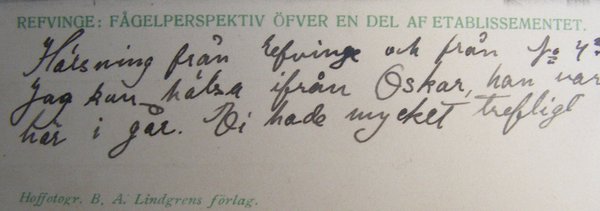 REFVINGE: FÅGELPERSPEKTIV ÖFVER EN DEL AF ETABLISSEMENTET.
Hälsning från Refvinge och från No 4
Jag kan hälsa ifrån Oskar, han var
här i går. Vi hade mycket trefligt
Hoffotogr. B. A. Lindgrens förlag.